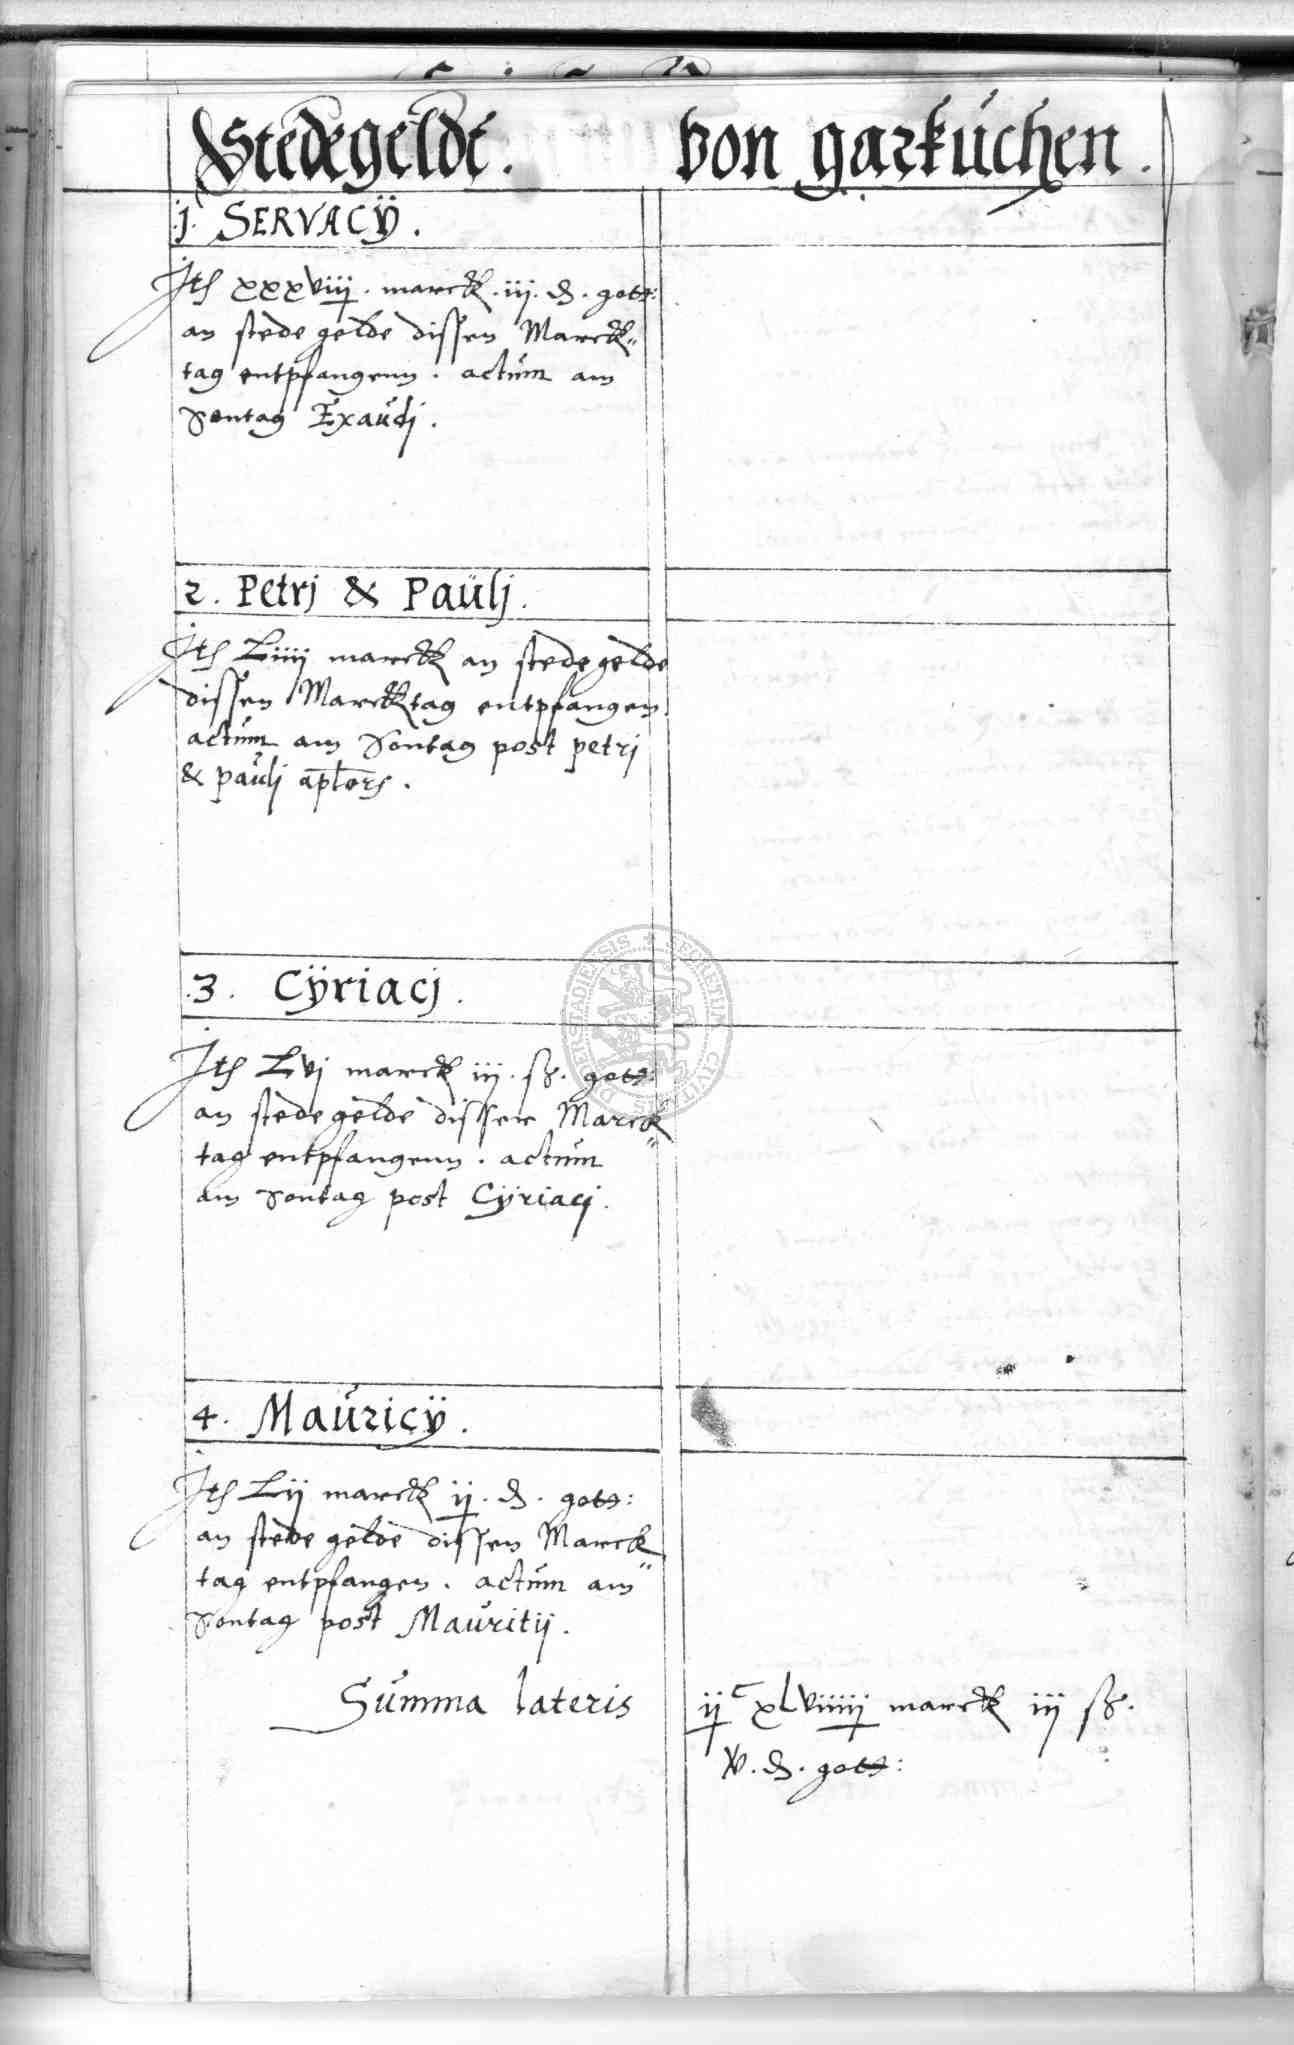 Stedegeldt. von garküchen.
.j. SERVACÿ.
Itē xxxviiij. marck. iij. ₰. gott:
an stede gelde dissen Marck„
tag entpfangenn. actum am
Sontag Exaudj.
2. Petrj & Paulj.
Itē Liiij marck an stedegelde
dissen Marcktag entpfangen.
actum am Sontag post petrj
& paulj apl̄ors.
.3. Cÿriacj.
Itē Lvj marck iij. ß. gott:
an stede gelde disser Marck„
tag entpfangenn. actum
am Sontag post Cÿriacj.
4. Mauricÿ.
Itē Lij marck ij. ₰. gott:
an stede gelde dissen Marck„
tag entpfangen. actum am
Sontag post Mauritij.
Summa lateris ijᶜ xLviiiij marck iij ß.
v. ₰. gott:
SECRETUM CIVITATIS DUDERSTADIENSIS